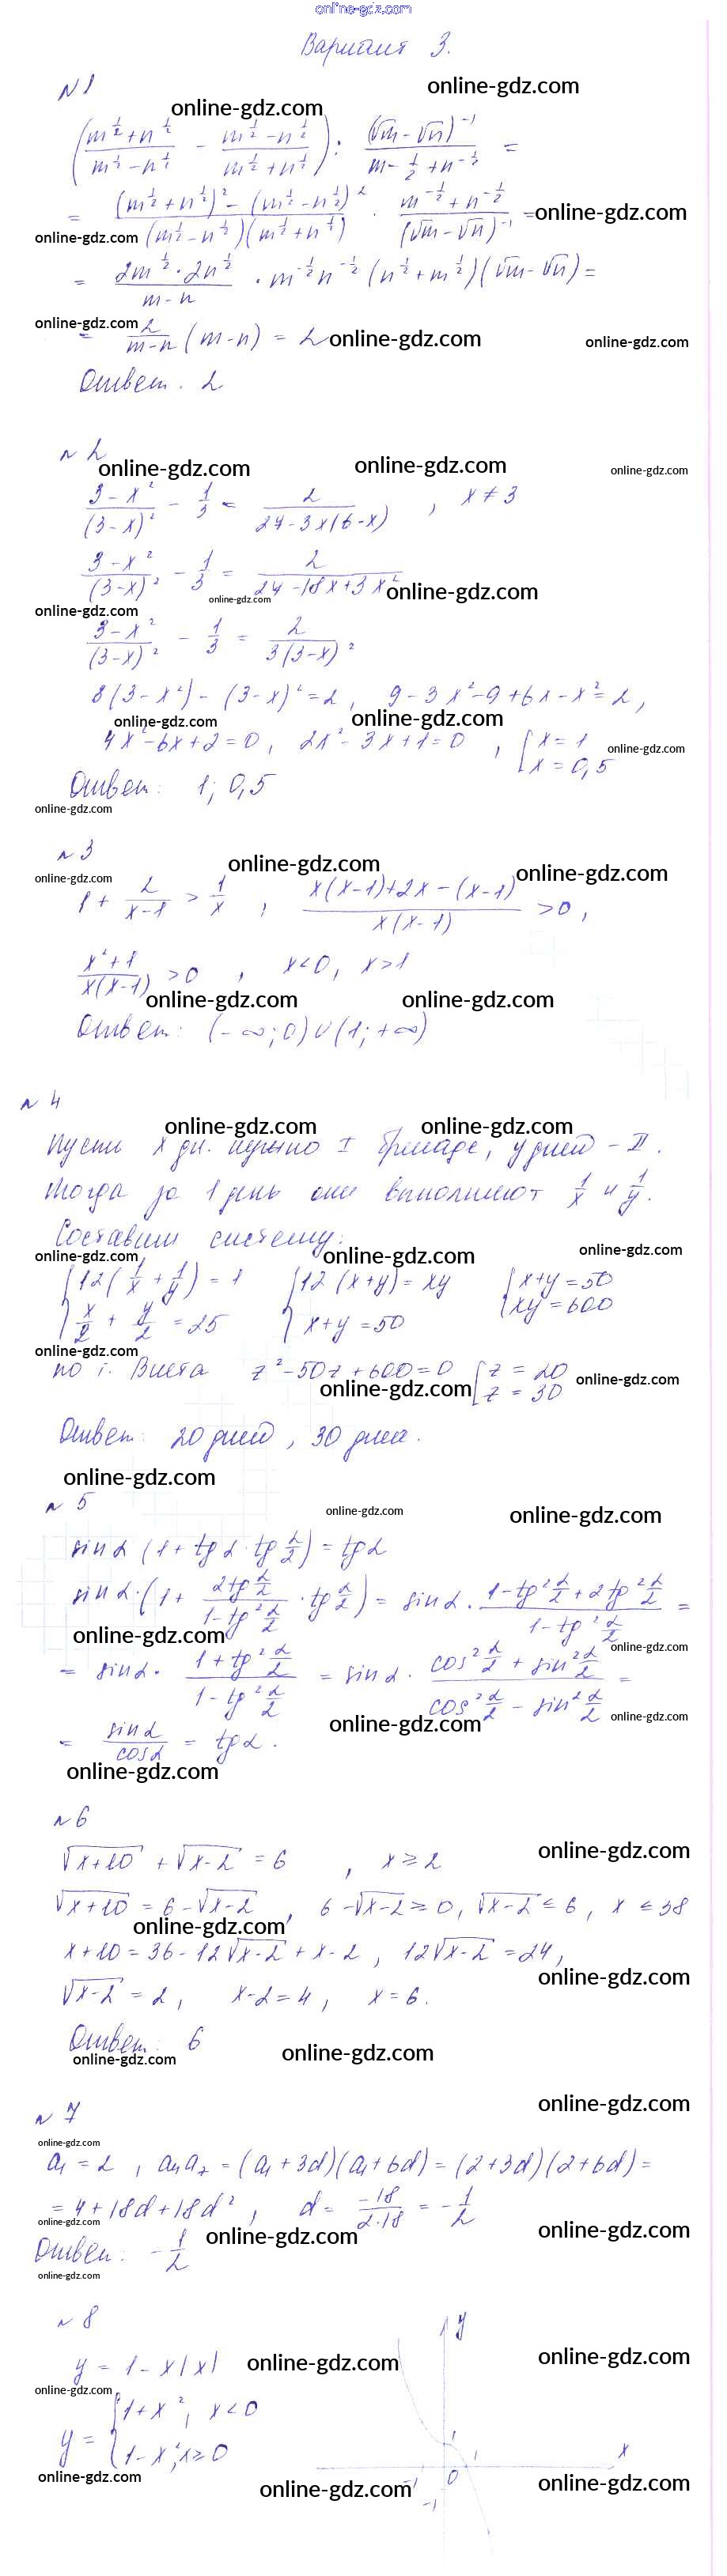 online-gdz.com
Вариант 3.
№1
online-gdz.com
online-gdz.com
(m^{1/2}+n^{1/2} / m^{1/2}-n^{1/2} - m^{1/2}-n^{1/2} / m^{1/2}+n^{1/2}) : (√m-√n)^{-1} / m-^{1/2}+n^{-1/2} =
= (m^{1/2}+n^{1/2})²-(m^{1/2}-n^{1/2})² / (m^{1/2}-n^{1/2})(m^{1/2}+n^{1/2}) · m^{-1/2}+n^{-1/2} / (√m-√n)^{-1} = online-gdz.com
online-gdz.com
= 2m^{1/2}·2n^{1/2} / m-n · m^{-1/2}n^{-1/2}(n^{1/2}+m^{1/2})(√m-√n)=
online-gdz.com
= 2 / m-n (m-n) = 2 online-gdz.com
online-gdz.com
Ответ. 2
№2
online-gdz.com
online-gdz.com
online-gdz.com
3-x² / (3-x)² - 1/3 = 2 / 27-3x(6-x) , x≠3
3-x² / (3-x)² - 1/3 = 2 / 27-18x+3x² online-gdz.com
online-gdz.com
online-gdz.com
3-x² / (3-x)² - 1/3 = 2 / 3(3-x)²
3(3-x²)-(3-x)²=2, 9-3x²-9+6x-x²=2,
online-gdz.com
online-gdz.com
4x²-6x+2=0, 2x²-3x+1=0 , [x=1 x=0,5
online-gdz.com
Ответ: 1; 0,5
online-gdz.com
№3
online-gdz.com
online-gdz.com
online-gdz.com
1 + 2/x-1 > 1/x , x(x-1)+2x-(x-1) / x(x-1) >0,
x²+1 / x(x-1) >0 , x<0, x>1
online-gdz.com
online-gdz.com
Ответ: (-∞;0)∪(1;+∞)
№4
online-gdz.com
online-gdz.com
Пусть x дн. нужно I бригаде, y дней - II.
Тогда за 1 день они выполняют 1/x и 1/y.
Составим систему:
online-gdz.com
online-gdz.com
online-gdz.com
{12(1/x+1/y)=1 {12(x+y)=xy {x+y=50
x/2+y/2=25 x+y=50 xy=600
online-gdz.com
по т. Виета z²-50z+600=0 [z=20 z=30
online-gdz.com
online-gdz.com
Ответ: 20 дней, 30 дней.
online-gdz.com
№5
online-gdz.com
online-gdz.com
sin α (1+tg α·tg α/2)=tg α
sin α·(1+ 2tg α/2 / 1-tg² α/2 · tg α/2) = sin α · 1-tg² α/2+2tg² α/2 / 1-tg² α/2 =
online-gdz.com
online-gdz.com
= sin α · 1+tg² α/2 / 1-tg² α/2 = sin α · cos² α/2+sin² α/2 / cos² α/2-sin² α/2 =
online-gdz.com
online-gdz.com
= sin α / cos α = tg α.
online-gdz.com
№6
online-gdz.com
√x+10 + √x-2 = 6 , x≥2
√x+10 = 6-√x-2, 6-√x-2≥0, √x-2≤6, x≤38
online-gdz.com
x+10=36-12√x-2+x-2, 12√x-2=24,
online-gdz.com
√x-2=2, x-2=4, x=6.
Ответ: 6
online-gdz.com
online-gdz.com
№7
online-gdz.com
online-gdz.com
a₁=2, a₄a₇=(a₁+3d)(a₁+6d)=(2+3d)(2+6d)=
=4+18d+18d², d= -18 / 2·18 = -1/2
online-gdz.com
online-gdz.com
online-gdz.com
Ответ: -1/2
online-gdz.com
№8
y
y = 1-x|x| online-gdz.com
online-gdz.com
online-gdz.com
y= {1+x², x<0
1-x², x≥0
1
1
x
-1
0
-1
online-gdz.com
online-gdz.com
online-gdz.com